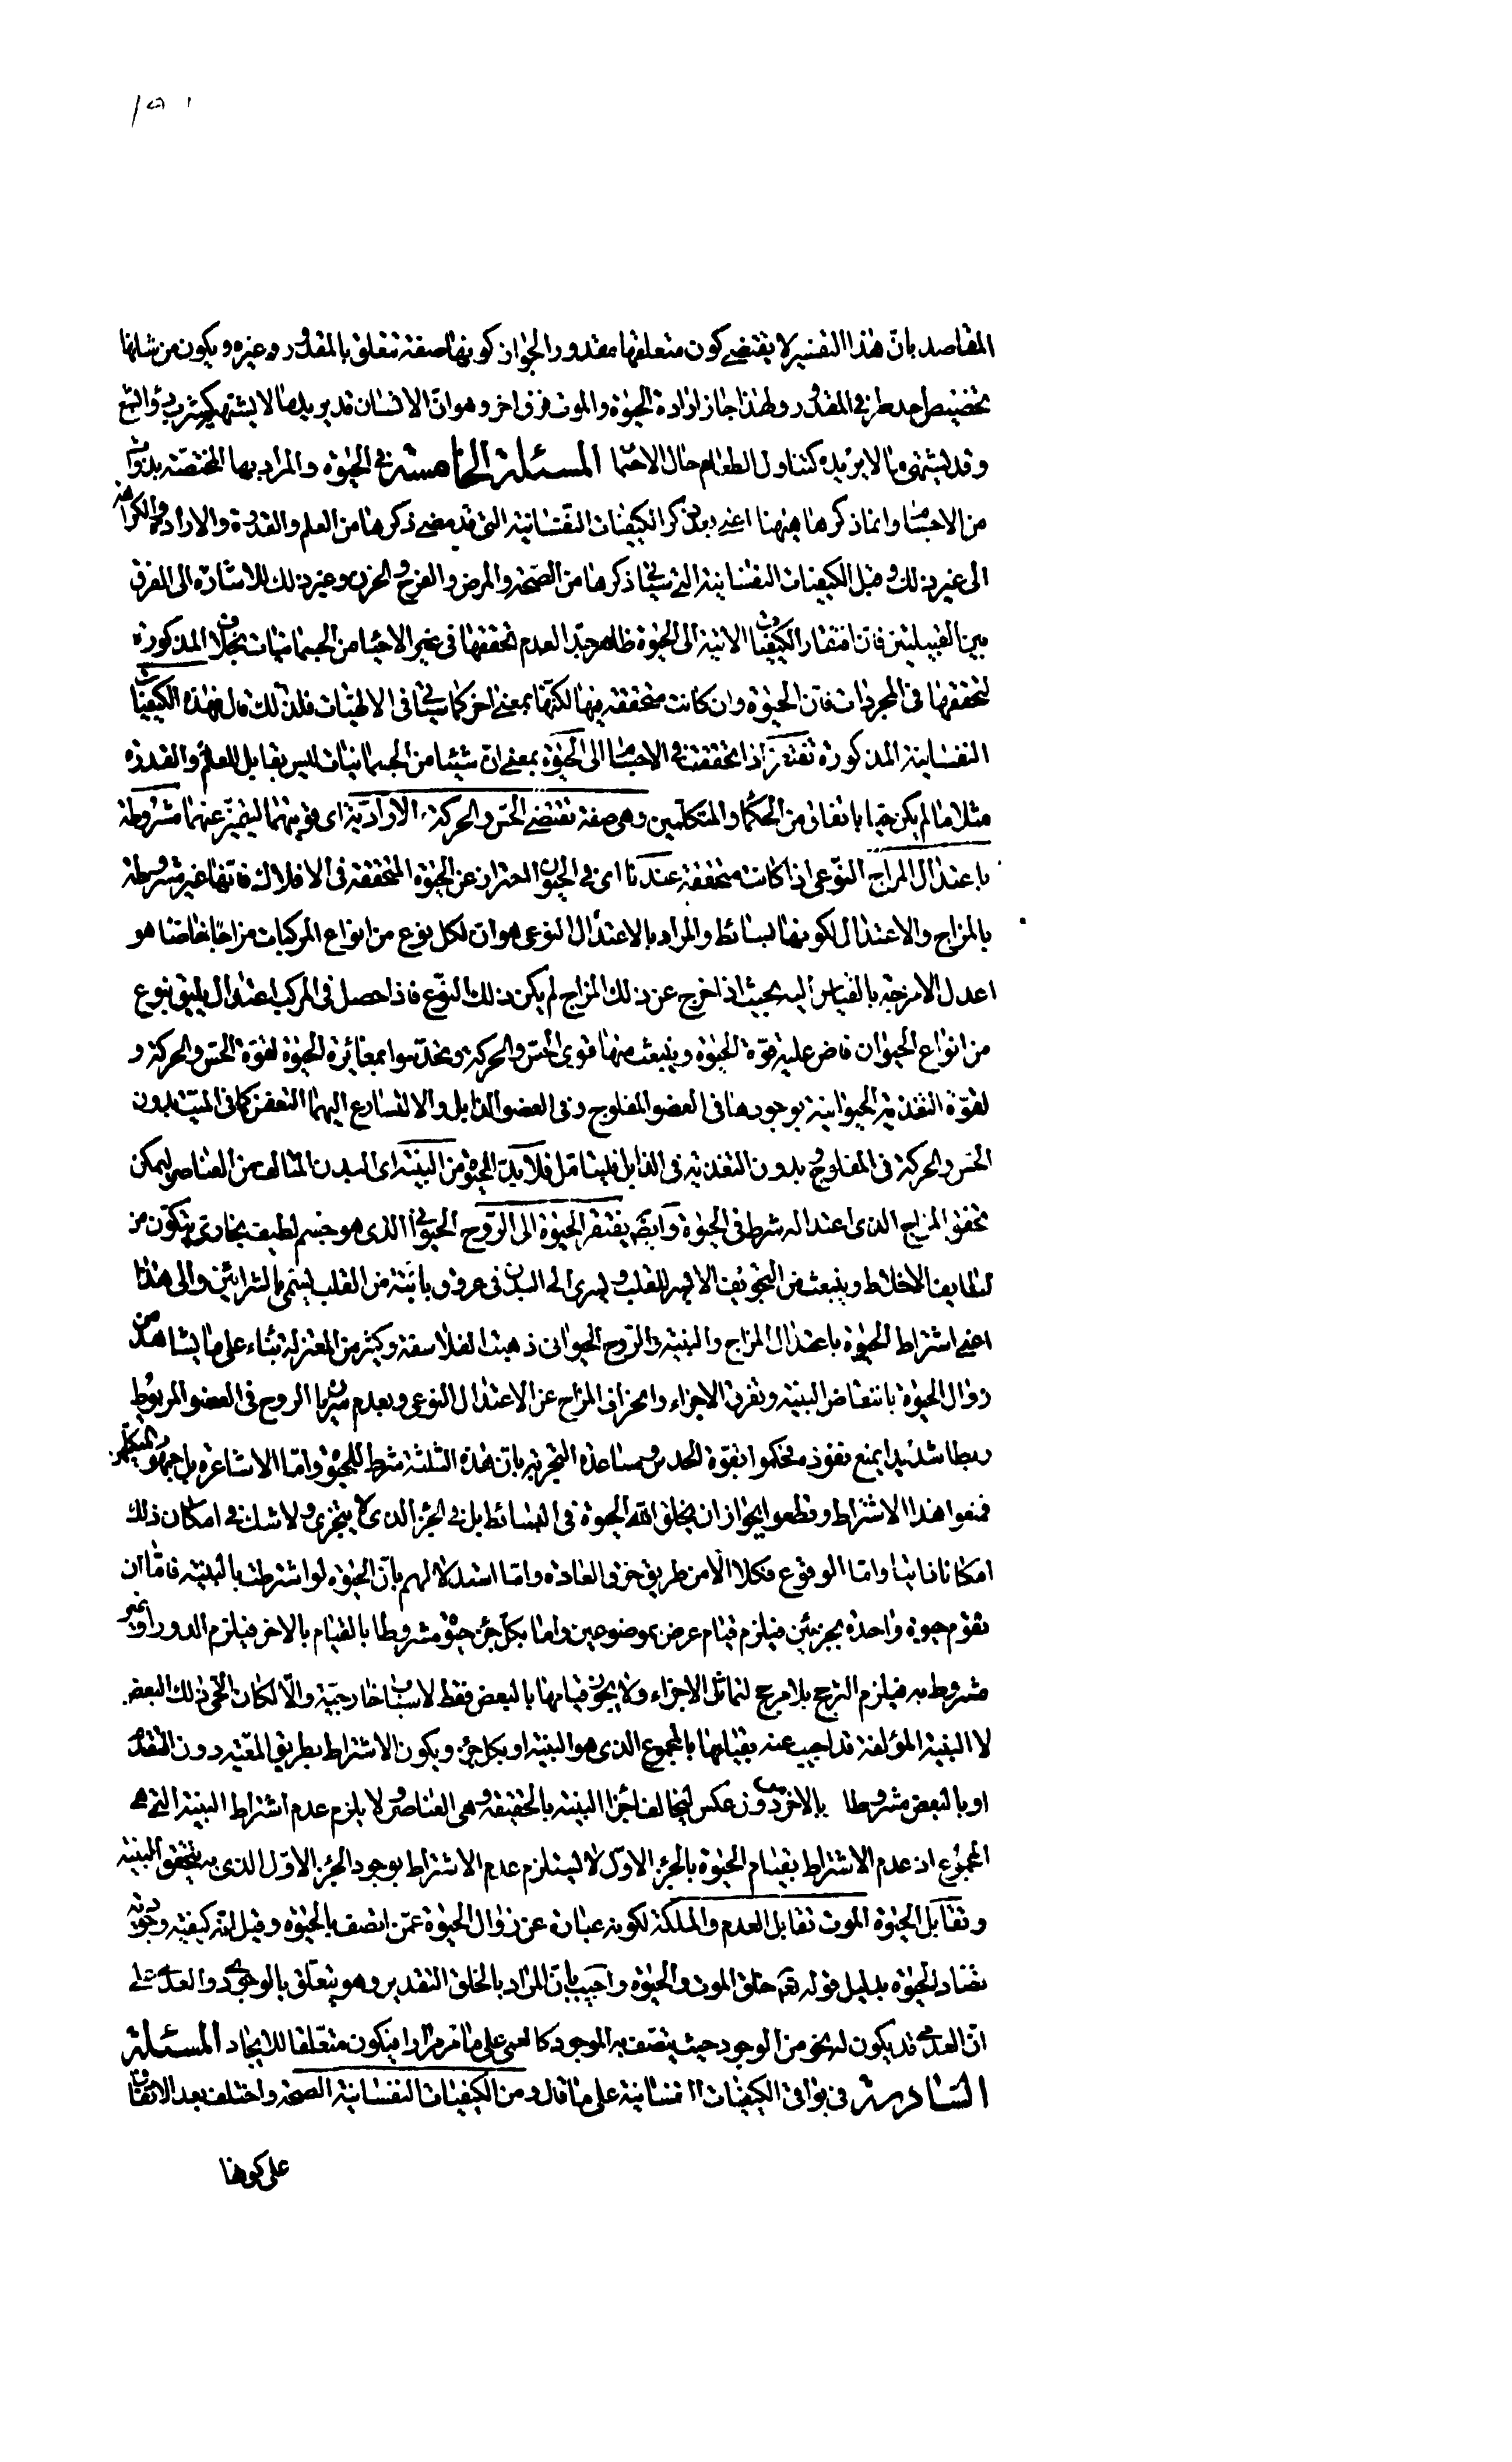 المقاصد بانّ هذا التفسير لا يقتضى كون متعلقها مقدورا لجواز كونها صفة تتعلق بالمقدور وغيره ويكون من شانها
تخصيص احد طرفى المقدور ولهذا جاز ارادة الحيوة والموت فرق اخر وهو انّ الانسان قد يريد ما لا يشتهيه كشرب دواء البشع
وقد يشتهى ما لا يريده كتناول الطعام حال الاحتما المسئلة الخامسة فى الحيوة والمراد بها المختصة بذوات
من الاجسام وانما ذكرها هيهنا اعنى بعد ذكر الكيفيات النفسانية التى قد مضى ذكرها من العلم والقدرة والارادة والكراهة
الى غير ذلك وقبل الكيفيات النفسانية التى سياتى ذكرها من الصّحة والمرض والفرح والحزن وغير ذلك للاشارة الى الفرق
بين القبيلتين فان افتقار الكيفيات الاتية الى الحيوة ظاهر جدّا لعدم تحققها فى غير الاحياء من الجسمانيات بخلاف المذكورة
لتحققها فى المجردات فانّ الحيوة وان كانت متحققة فيها لكنّها بمعنى اخر كما سياتى فى الالهيات فلذلك قال فهذه الكيفيات
النفسانية المذكورة تفتقر اذا تحققت فى الاجسام الى الحيوة بمعنى انّ شيئا من الجسمانيات ليس بقابل للعلم والقدرة
مثلا ما لم يكن حيّا باتفاق من الحكما والمتكلمين وهى صفة تقتضى الحسّ والحركة الارادّية اى قوتيهما ليتميّز عنهما مشروطة
باعتدال المزاج النّوعى اذا كانت متحققة عندنا اى فى الحيوان احتراز عن الحيوة المتحققة فى الافلاك فانّها غير مشروطة
بالمزاج والاعتدال لكونها بسائط والمراد بالاعتدال النوعى هو ان لكل نوع من انواع المركبات مزاجا خاصّا هو
اعدل الامزجة بالقياس اليه بحيث اذا خرج عن ذلك المزاج لم يكن ذلك النّوع فاذا حصل فى المركب اعتدال يليق بنوع
من انواع الحيوان فاض عليه قوّة الحيوة وينبعث منها قوى الحسّ والحركة وتحدّسوا بمغائرة الحيوة لقوّة الحسّ والحركة و
لقوّة التغذية الحيوانية بوجودها فى العضو المفلوج وفى العضو الذابل والا لتسارع اليهما التعفن كما فى الميّت بدون
الحسّ والحركة فى المفلوج وبدون التغذية فى الذابل فليتامّل فلا بدّ للحيوة من البنية اى البدن المتالف من العناصر ليمكن
تحقق المزاج الذى اعتداله شرط فى الحيوة وايضا يفتقر الحيوة الى الرّوح الحيوانى الذى هو جسم لطيف بخارى يتكوّن من
لطايف الاخلاط وينبعث من التجويف الايسر للقلب ويسرى الى البدن فى عروق نابتة من القلب يسمّى بالشرايين والى هذا
اعنى اشتراط الحيوة باعتدال المزاج والبنية والرّوح الحيوانى ذهبت الفلاسفة وكثير من المعتزلة بناء على ما يشاهد من
زوال الحيوة بانتقاض البنية وتفرق الاجزاء وانحراف المزاج عن الاعتدال النوعى وبعدم سريان الروح فى العضو المربوط
ربطا شديدا يمنع نفوذه فحكموا بقوّة الحدس ومساعدة التجربة بانّ هذه الثلثة شرط للحيوة وامّا الاشاعرة بل جمهور المتكلّمين
فمنعوا هذا الاشتراط وقطعوا بجواز ان يخلق الله الحيوة فى البسائط بل فى الجزء الذى لا يتجزى ولا شك فى امكان ذلك
امكانا ذاتيا وامّا الوقوع فكلا الّا من طريق خرق العادة وامّا استدلالهم بانّ الحيوة لو اشترطت بالبنية فامّا ان
تقوم حيوة واحدة بجزئين فيلزم قيام عرض بموضوعين وامّا بكل جزء حيوة مشروطا بالقيام بالاخر فيلزم الدور او غير
مشروط به فيلزم الترجّح بلا مرجح لتماثل الاجزاء ولا يجوز قيامها بالبعض فقط لاسباب خارجيّة والّا لكان الحى ذلك البعض
لا البنية المؤلفة قد اجيب عنه بقيامها بالمجموع الذى هو البنية او بكل جزء ويكون الاشتراط بطريق المعيّة دون التقدّم
او بالبعض مشروطا بالاخر من دون عكس لتخالف اجزاء البنية بالحقيقة وهى العناصر ولا يلزم عدم اشتراط البنية التى هى
المجموع اذ عدم الاشتراط بقيام الحيوة بالجزء الاوّل لا يستلزم عدم الاشتراط بوجود الجزء الاوّل الذى به يتحقق البنية
وتقابل الحيوة الموت تقابل العدم والملكة لكونه عبارة عن زوال الحيوة عمّن اتصف بالحيوة وقيل انّه كيفيّة وجودية
تضاد الحيوة بدليل قوله تعم خلق الموت والحيوة واجيب بانّ المراد بالخلق التقدير وهو يتعلّق بالوجودى والعدمى على
انّ العدمى قد يكون له نحو من الوجود حيث يتصف به الموجود كالعمى على ما مرّ مرارا فيكون متعّلقا للايجاد المسئلة
السّادسة فى بواقى الكيفيّات النفسانية على ما قال ومن الكيفيات النفسانية الصحة واختلف بعد الاتفاق
على كونها